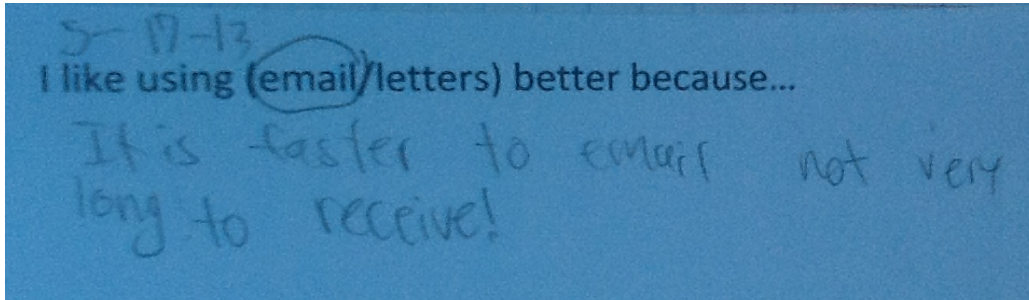 5-17-13
I like using (email/letters) better because...
It is faster to email not very
long to receive!